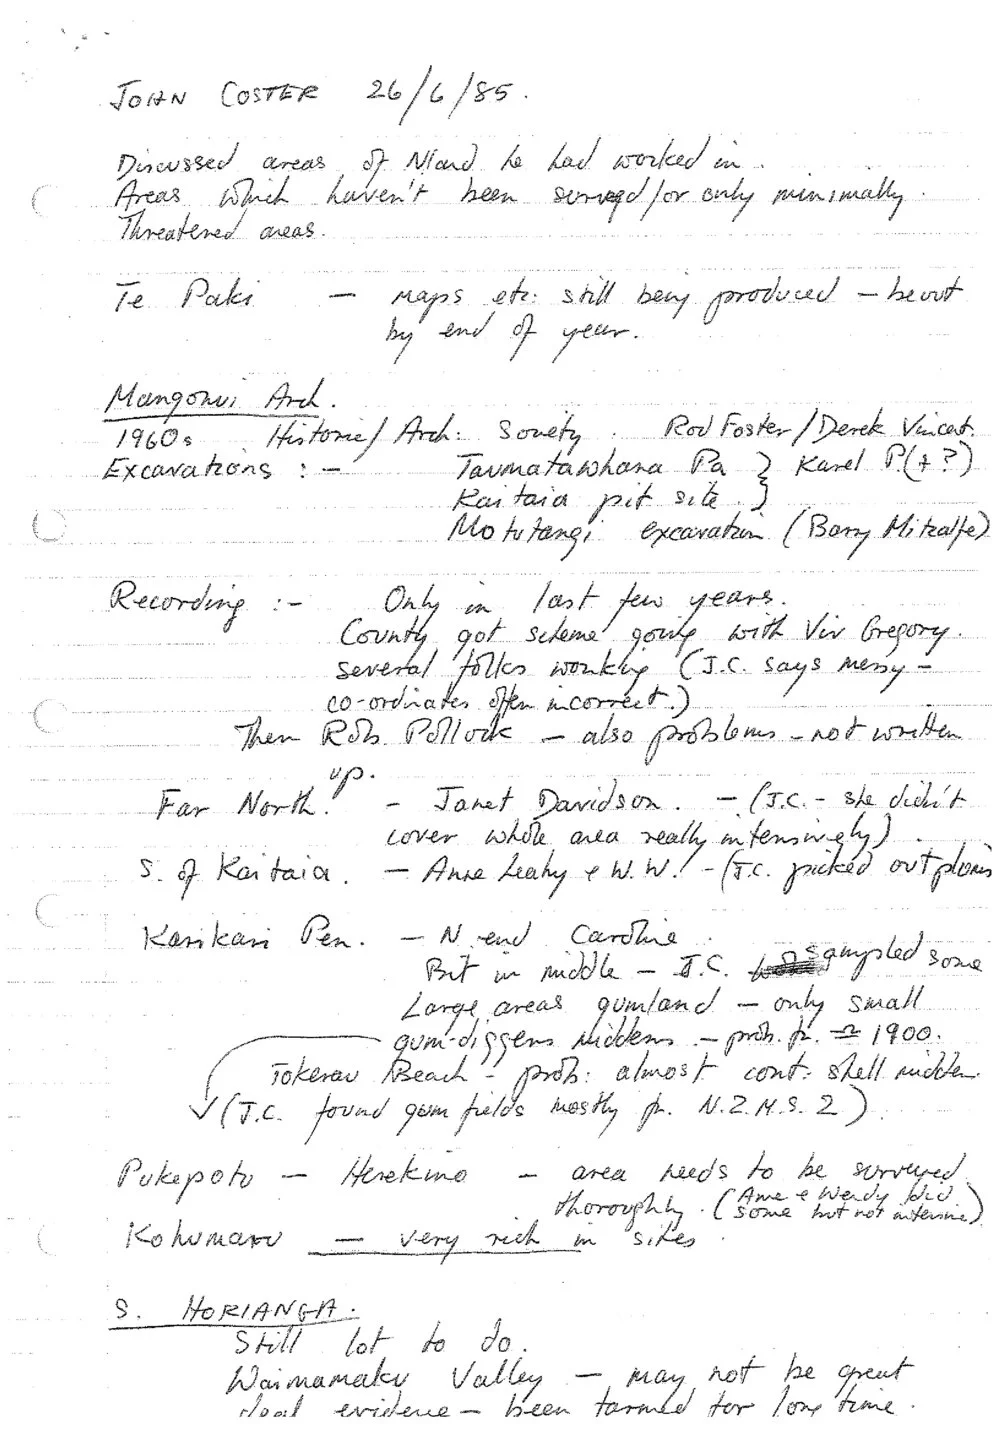 JOHN COSTER 26/6/85.
Discussed areas of N'land he had worked in.
Areas which haven't been surveyed/or only minimally
Threatened areas.
Te Paki — maps etc. still being produced — be out
by end of year.
Mangonui Arch.
1960s Historic/Arch. Society. Rod Foster/Derek Vincent.
Excavations :- Taumatawhana Pa } Karel P(+?)
Kaitaia pit site. }
Motutangi excavation (Barry Mitcalfe)
Recording :- Only in last few years.
County got scheme going with Viv Gregory.
several folks working (J.C. says messy –
co-ordinates often incorrect.)
Then Rob. Pollock – also problems – not written
up.
Far North. - Janet Davidson. – (J.C. - she didn't
cover whole area really intensively).
S. of Kaitaia. – Anne Leahy + W.W. - (J.C. picked out plains
Karikari Pen. – N. end Caroline.
But in middle – J.C. sampled some
Large areas gumland – only small
gum-diggers middens – prob. fr. ≏ 1900.
Tokerau Beach - prob. almost cont. shell midden.
(J.C. found gum fields mostly fr. N.Z.M.S. 2).
Pukepoto — Herekino — area needs to be surveyed
thoroughly. (Anne + Wendy did
some but not intensive)
Kohumaru — very rich in sites
S. HOKIANGA.
Still lot to do.
Waimamaku Valley — may not be great
deal evidence – been farmed for long time.